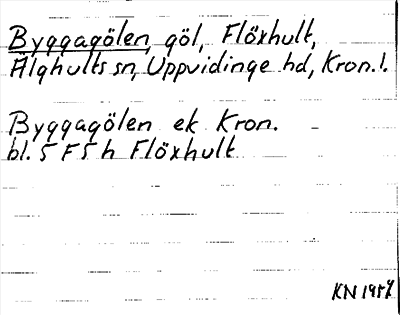 Byggagölen, göl, Flöxhult,
Älghults sn, Uppvidinge hd, Kron.l.
Byggagölen ek Kron.
bl. 5 F 5 h Flöxhult
KN